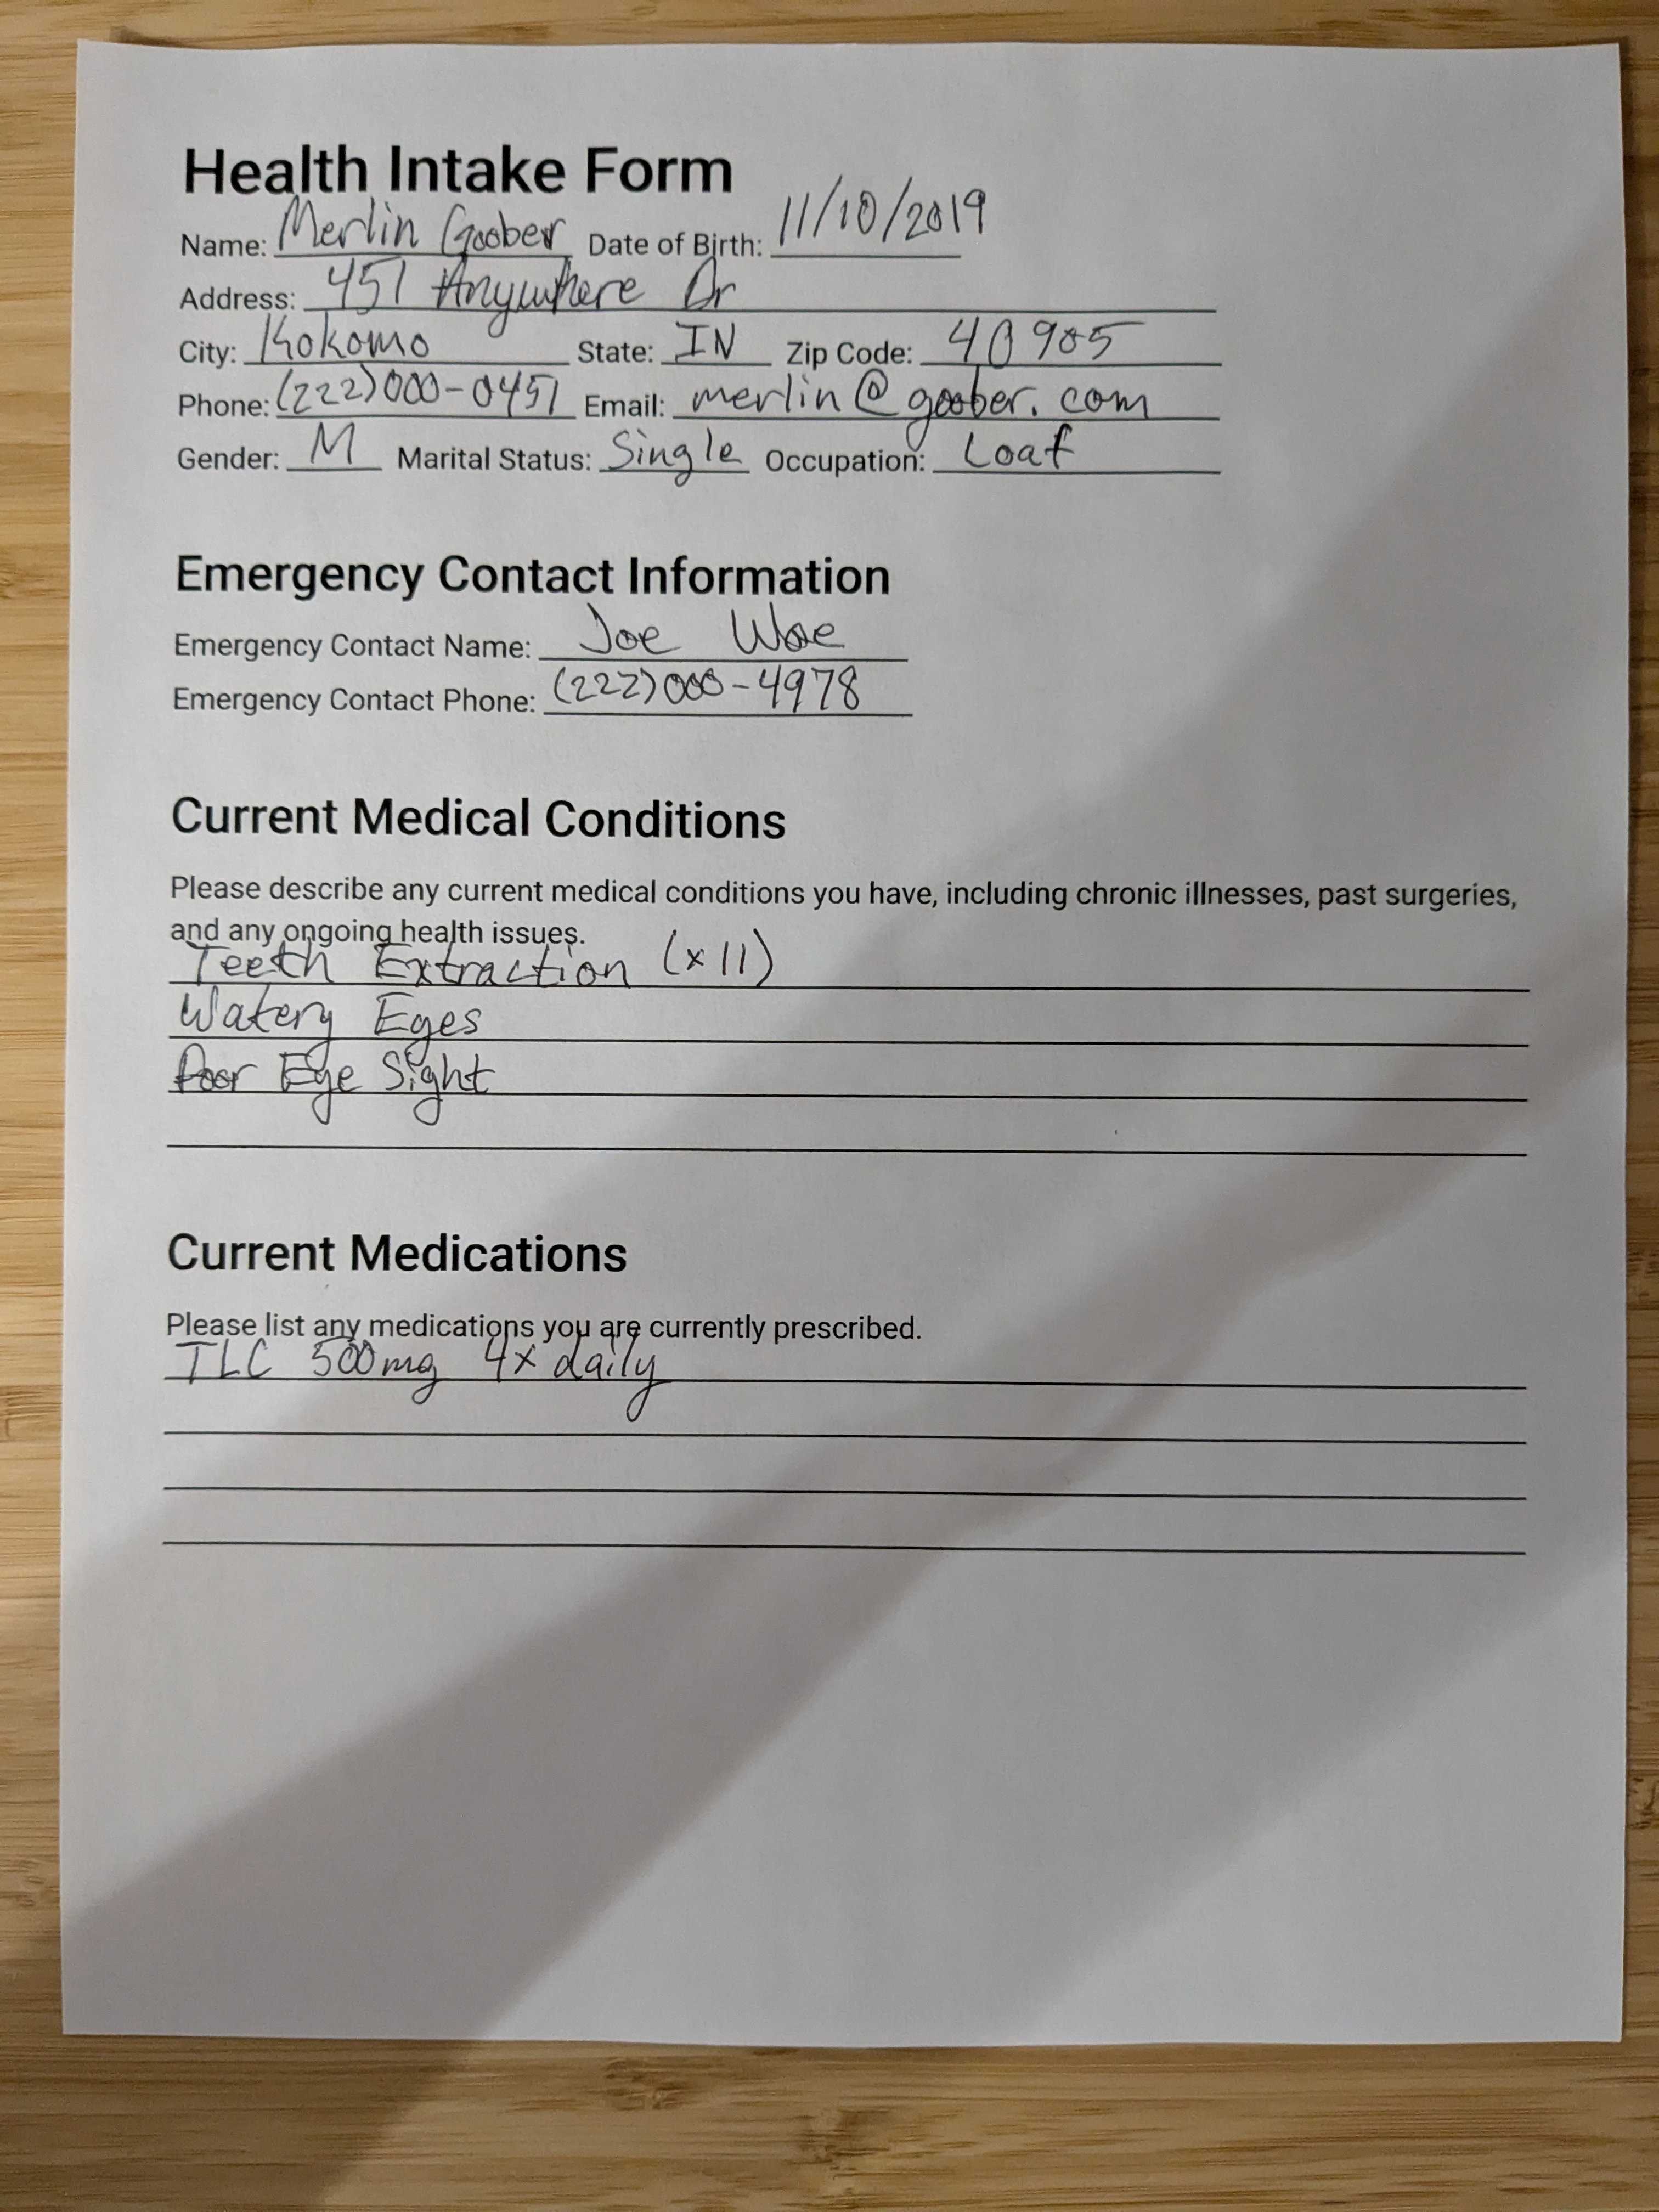 Health Intake Form
Name: Merlin Goober Date of Birth: 11/10/2019
Address: 451 Anywhere Dr
City: Kokomo State: IN Zip Code: 40905
Phone: (222)000-0451 Email: merlin@goober.com
Gender: M Marital Status: Single Occupation: Loaf
Emergency Contact Information
Emergency Contact Name: Joe Woe
Emergency Contact Phone: (222)000-4978
Current Medical Conditions
Please describe any current medical conditions you have, including chronic illnesses, past surgeries,
and any ongoing health issues.
Teeth Extraction (x11)
Watery Eyes
Poor Eye Sight
Current Medications
Please list any medications you are currently prescribed.
TLC 500mg 4x daily